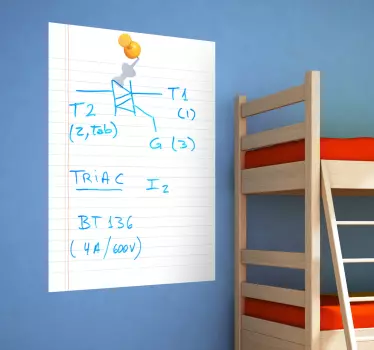 T2 T1
(2, Tab) (1)
G (3)
TRIAC I2
BT 136
(4A/600V)